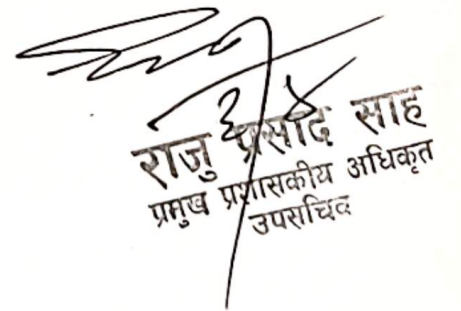 राजु प्रसाद साह
प्रमुख प्रशासकीय अधिकृत
उपसचिव